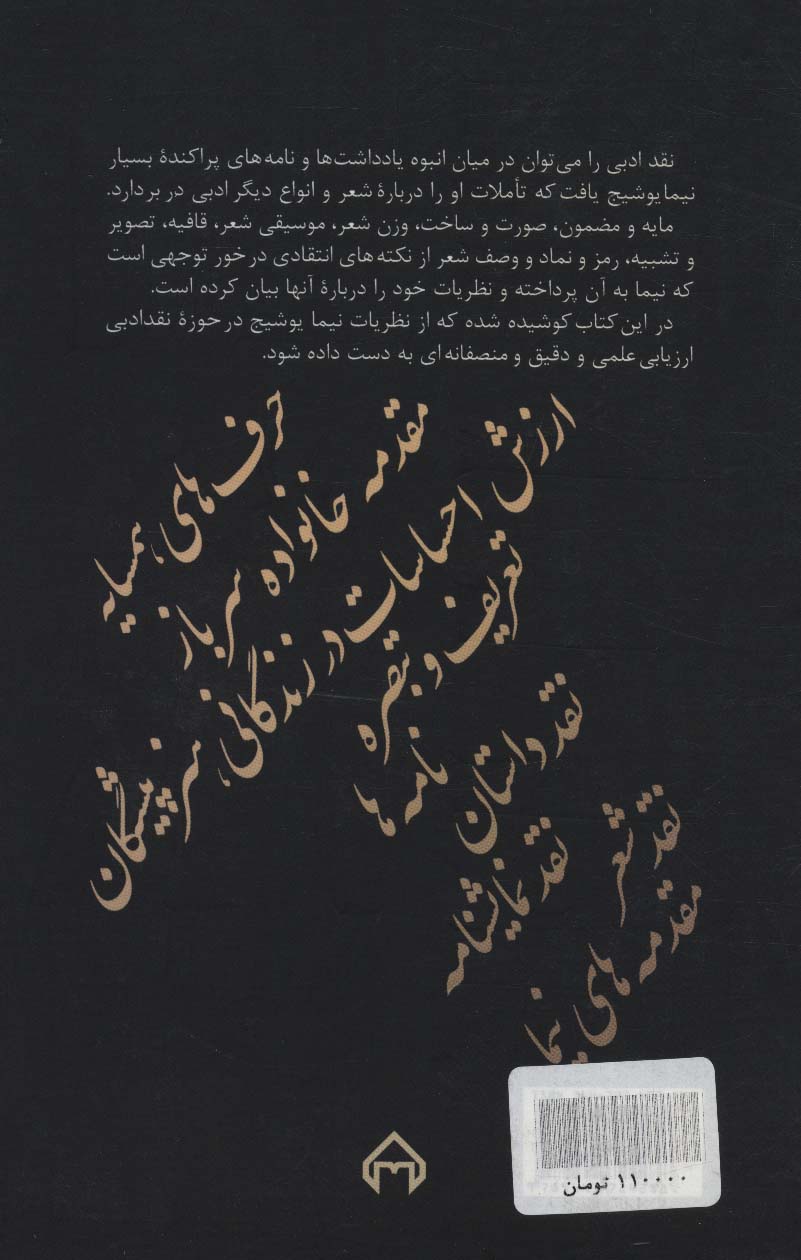 نقد ادبی را می‌توان در میان انبوه یادداشت‌ها و نامه‌های پراکندهٔ بسیار
نیما یوشیج یافت که تأملات او را دربارهٔ شعر و انواع دیگر ادبی در بر دارد.
مایه و مضمون، صورت و ساخت، وزن شعر، موسیقی شعر، قافیه، تصویر
و تشبیه، رمز و نماد و وصف شعر از نکته‌های انتقادی در خور توجهی است
که نیما به آن پرداخته و نظریات خود را دربارهٔ آنها بیان کرده است.
در این کتاب کوشیده شده که از نظریات نیما یوشیج در حوزهٔ نقدادبی
ارزیابی علمی و دقیق و منصفانه‌ای به دست داده شود.
حرف‌های همسایه
مقدمه خانواده سرباز
ارزش احساسات در زندگانی هنرپیشگان
تعریف و تبصره
نامه‌ها
نقد داستان
نقد نمایشنامه
نقد شعر
مقدمه‌های نیما
۱۱۰۰۰۰ تومان